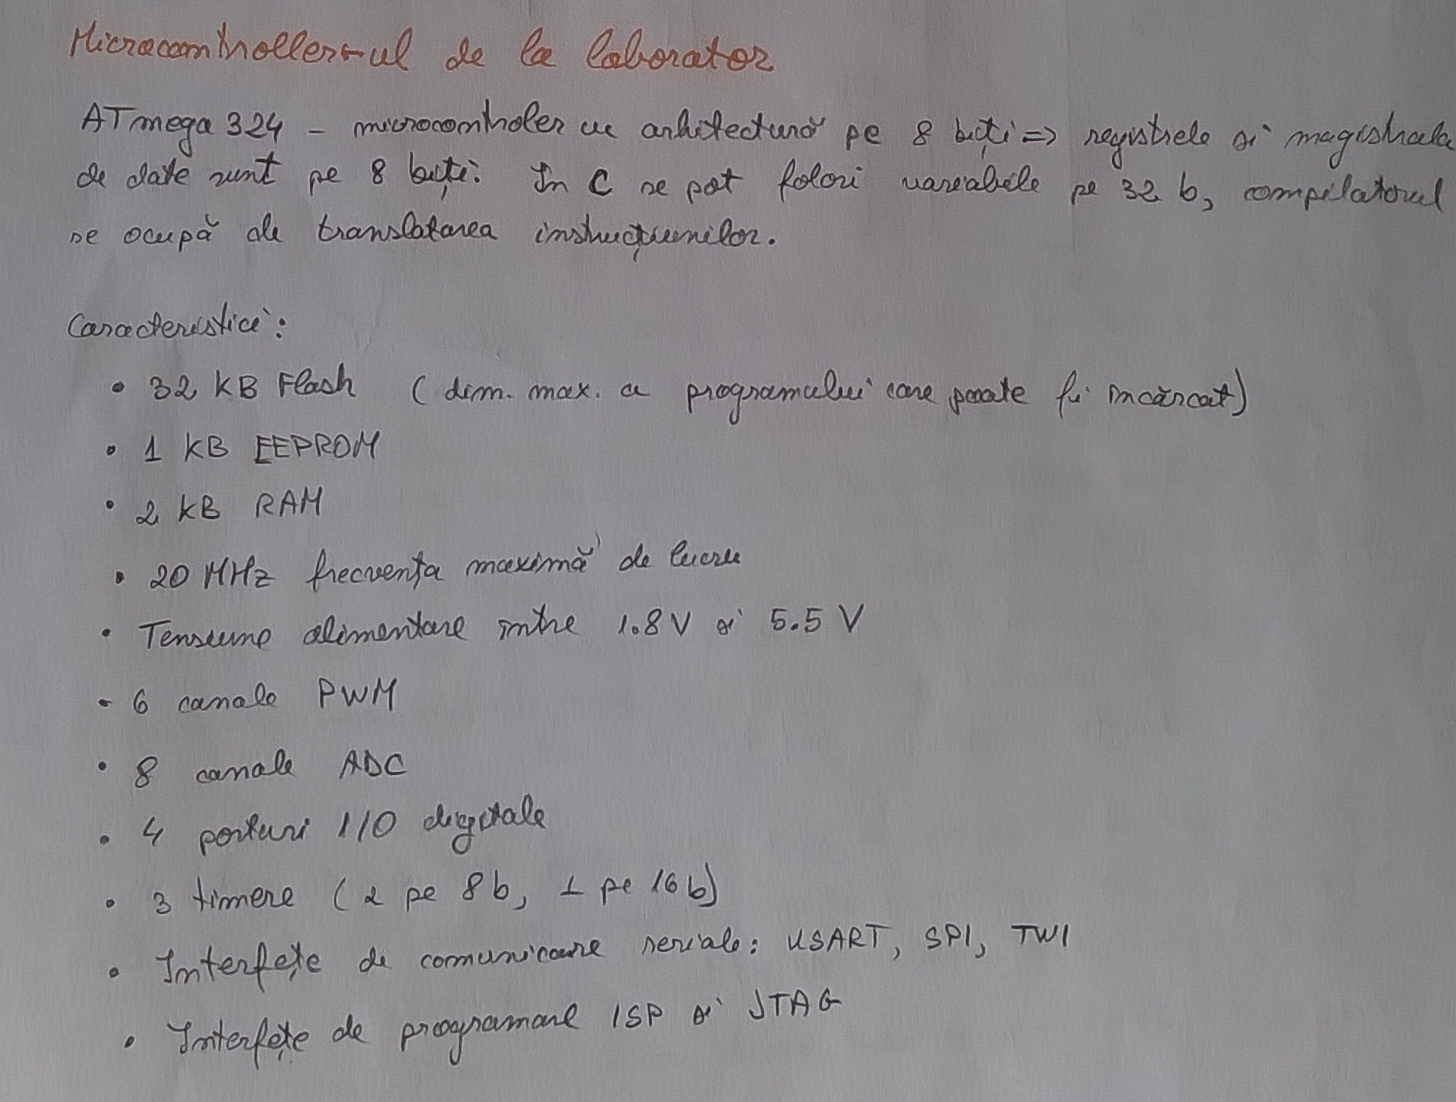 Microcontroller-ul de la laborator
ATmega324 - microcontroler cu arhitectură pe 8 biți => registrele și magistrala
de date sunt pe 8 biți. In C se pot folosi variabile pe 32 b, compilatorul
se ocupă de translatarea instrucțiunilor.
Caracteristici:
• 32 kB Flash (dim. max. a programului care poate fi încărcat)
• 1 KB EEPROM
• 2 kB RAM
• 20 MHz frecvența maximă de lucru
• Tensiune alimentare între 1.8V și 5.5 V
- 6 canale PWM
• 8 canale ADC
• 4 porturi I/O digitale
• 3 timere (2 pe 8b, 1 pe 16b)
• Interfețe de comunicare seriale: USART, SPI, TWI
• Interfețe de programare ISP și JTAG